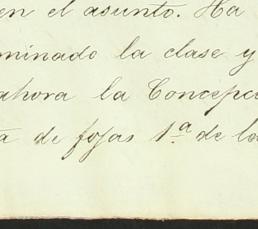 en el asunto. Ha
minado la clase y
ahora la Concepc
a de fojas 1.ª de lo